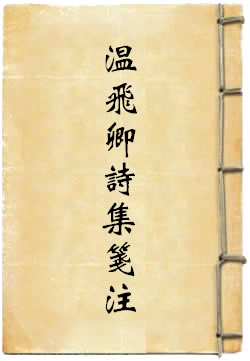 温飛卿詩集箋注